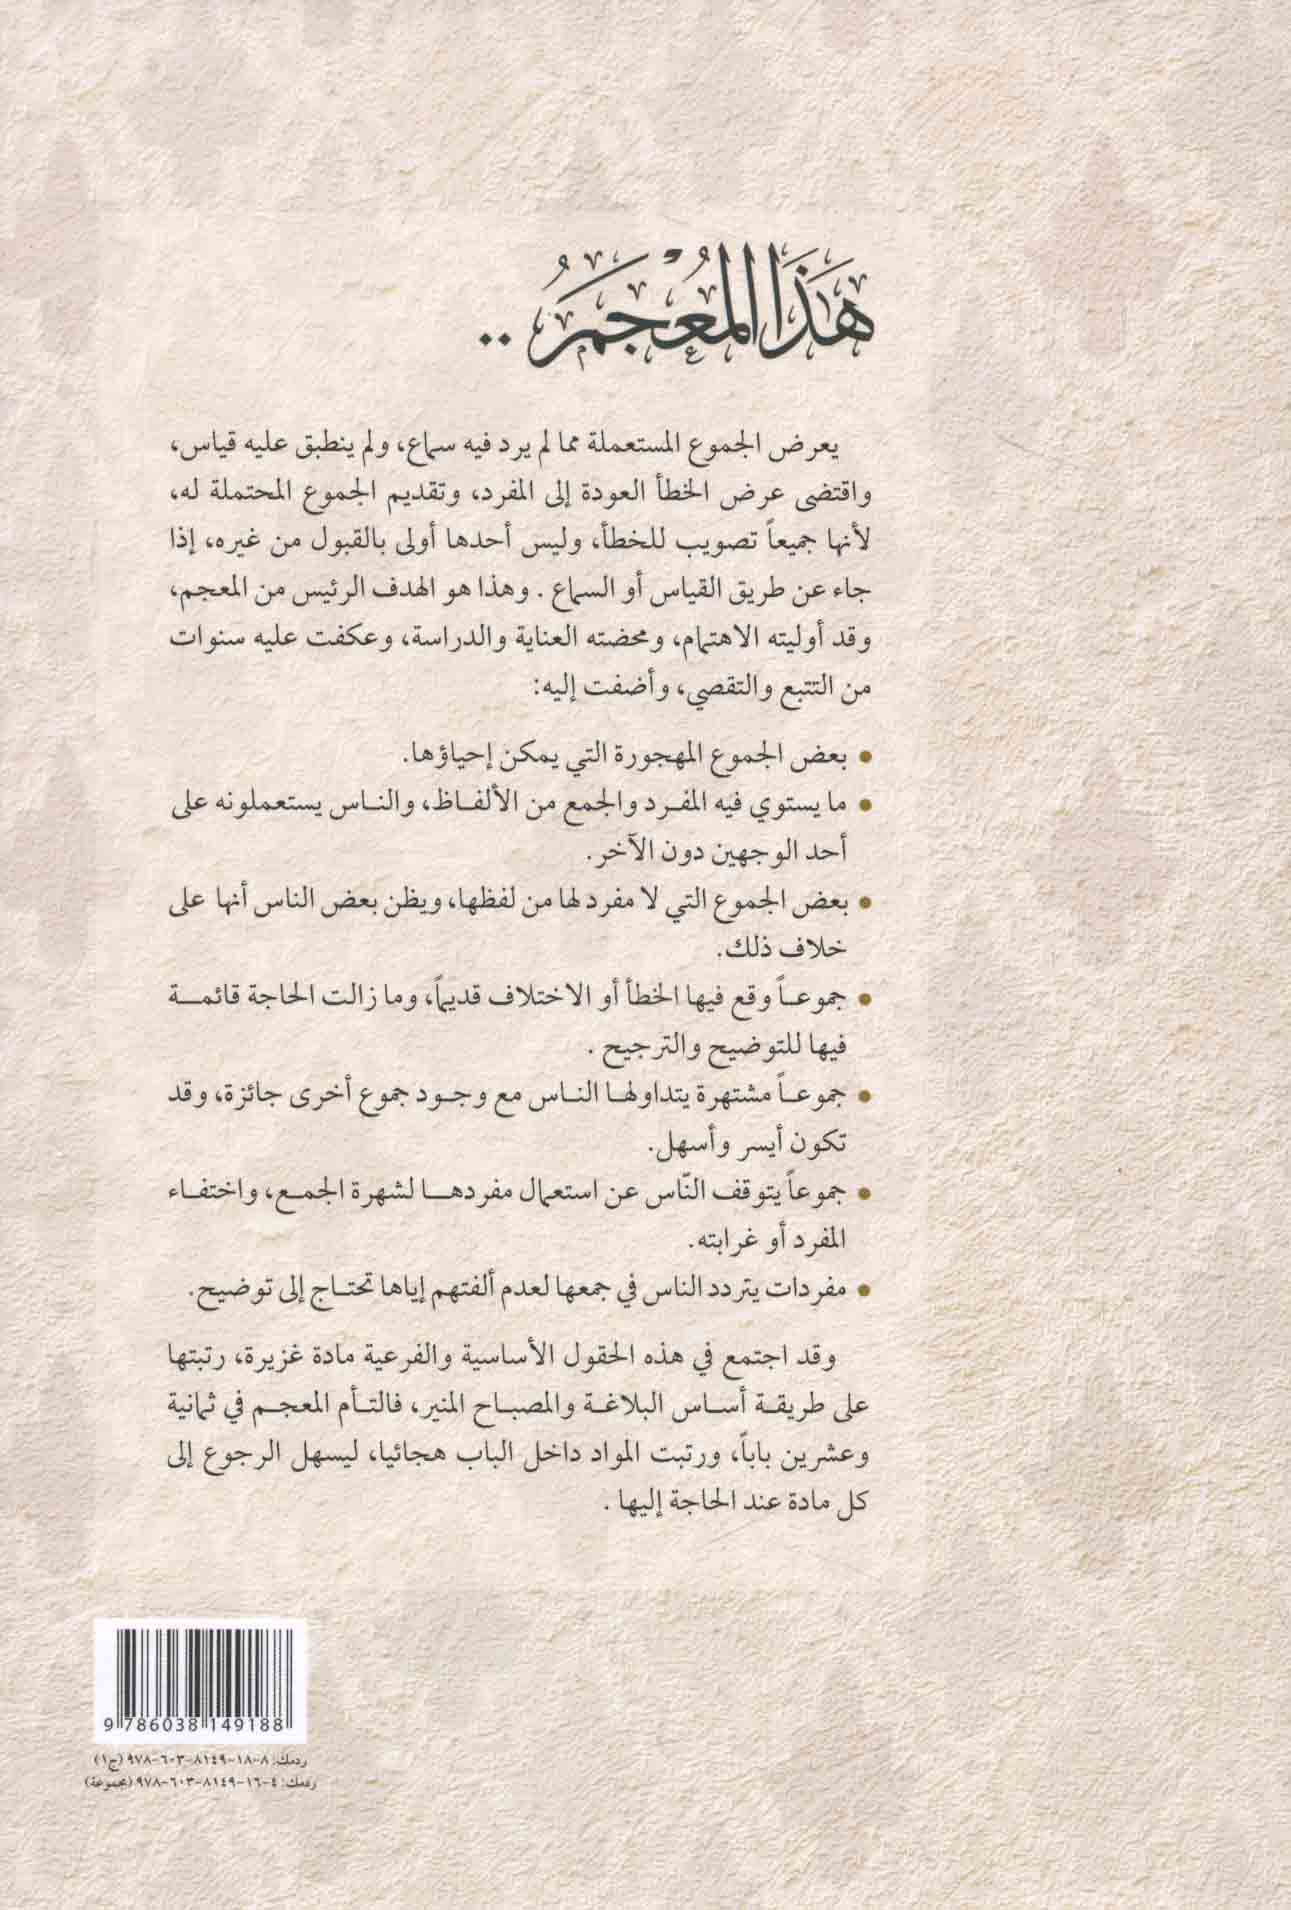 هَذَا المُعْجَمُ ..
يعرض الجموع المستعملة مما لم يرد فيه سماع، ولم ينطبق عليه قياس،
واقتضى عرض الخطأ العودة إلى المفرد، وتقديم الجموع المحتملة له،
لأنها جميعاً تصويب للخطأ، وليس أحدها أولى بالقبول من غيره، إذا
جاء عن طريق القياس أو السماع . وهذا هو الهدف الرئيس من المعجم،
وقد أوليته الاهتمام، ومحضته العناية والدراسة، وعكفت عليه سنوات
من التتبع والتقصي، وأضفت إليه:
● بعض الجموع المهجورة التي يمكن إحياؤها.
● ما يستوي فيه المفرد والجمع من الألفاظ، والناس يستعملونه على
أحد الوجهين دون الآخر.
● بعض الجموع التي لا مفرد لها من لفظها، ويظن بعض الناس أنها على
خلاف ذلك.
● جموعاً وقع فيها الخطأ أو الاختلاف قديماً، وما زالت الحاجة قائمة
فيها للتوضيح والترجيح .
● جموعاً مشتهرة يتداولها الناس مع وجود جموع أخرى جائزة، وقد
تكون أيسر وأسهل.
● جموعاً يتوقف النّاس عن استعمال مفردها لشهرة الجمع، واختفاء
المفرد أو غرابته.
● مفردات يتردد الناس في جمعها لعدم ألفتهم إياها تحتاج إلى توضيح.
وقد اجتمع في هذه الحقول الأساسية والفرعية مادة غزيرة، رتبتها
على طريقة أساس البلاغة والمصباح المنير، فالتأم المعجم في ثمانية
وعشرين باباً، ورتبت المواد داخل الباب هجائيا، ليسهل الرجوع إلى
كل مادة عند الحاجة إليها .
9 786038 149188
ردمك: ٨-١٨-٨١٤٩-٦٠٣-٩٧٨ (ج١)
ردمك: ٤-١٦-٨١٤٩-٦٠٣-٩٧٨ (مجموعة)